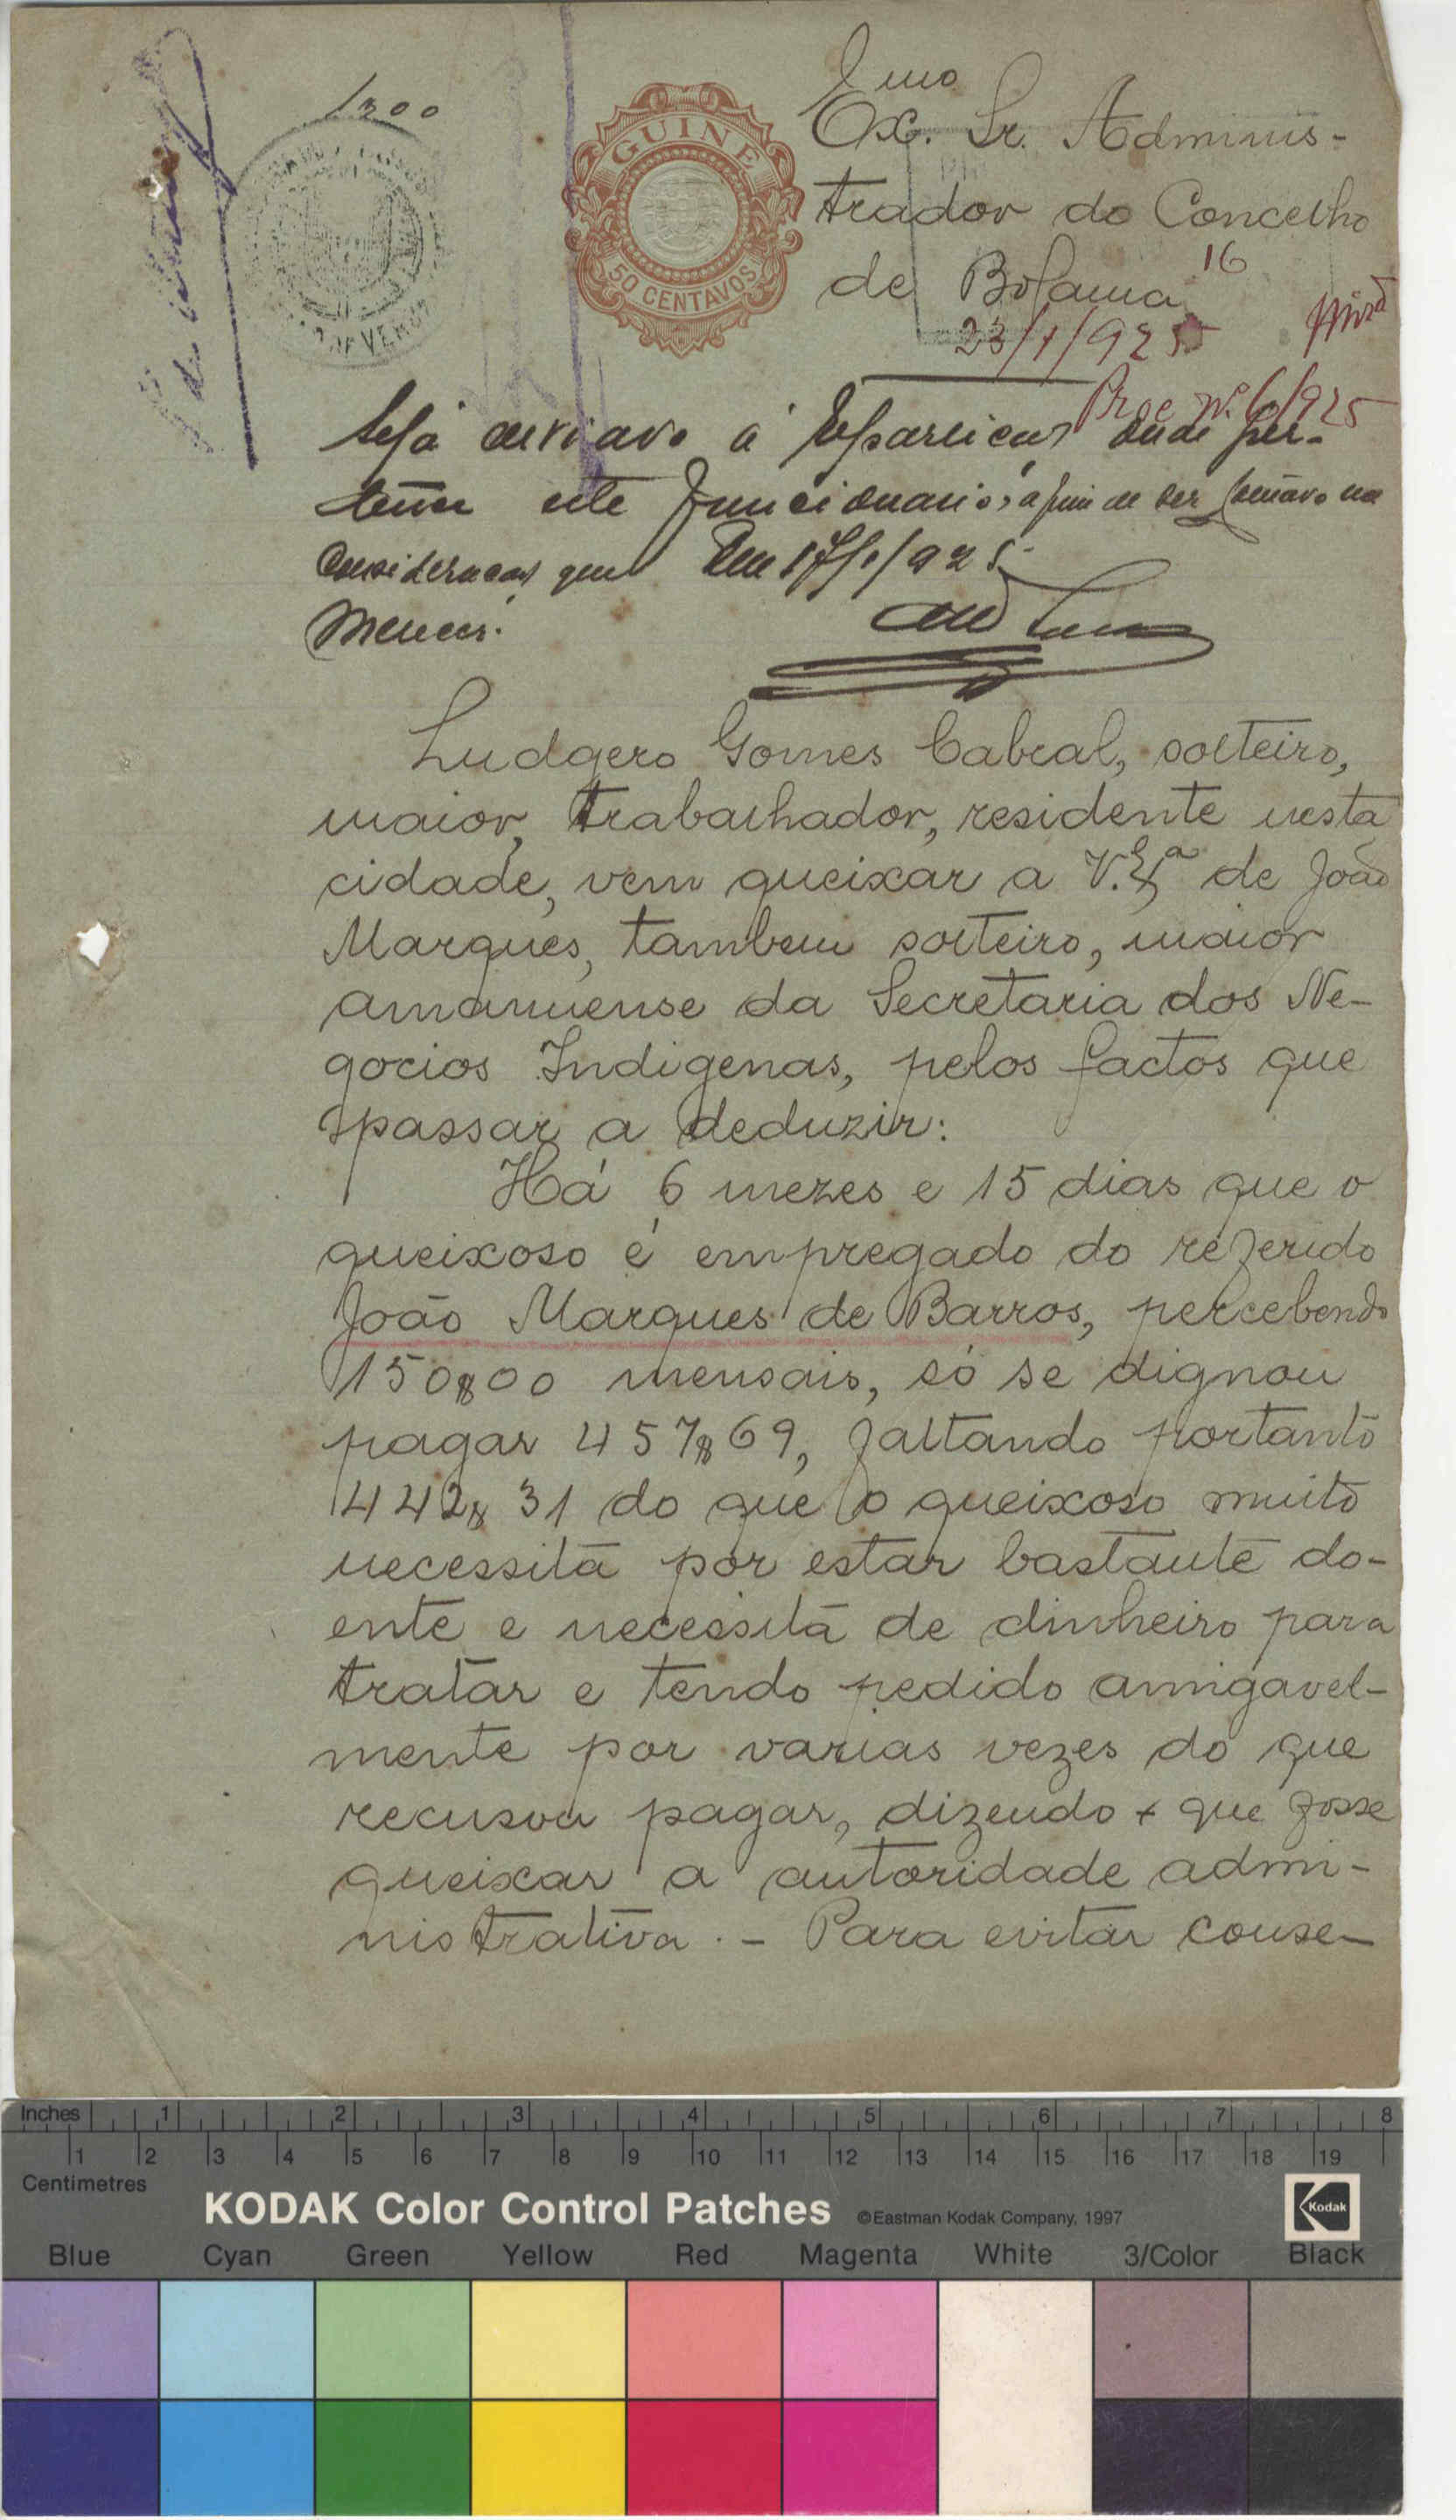 1$00
GUINE
50 CENTAVOS
Emo
Ex. Sr. Adminis-
trador do Concelho
de Bolama
16
23/1/925
Proc nº 6/925
Seja enviado á Repartição onde per-
tence este funcionario, a fim de ser tomado na
consideração que Em 17/1/925
merecer.
Ludgero Gomes Cabral, solteiro,
maior, trabalhador, residente nesta
cidade, vem queixar a V. Exª de João
Marques, tambem solteiro, maior
amanuense da Secretaria dos Ne-
gocios Indigenas, pelos factos que
passar a deduzir:
Há 6 mezes e 15 dias que o
queixoso é empregado do referido
João Marques de Barros, percebendo
150$00 mensais, só se dignou
pagar 457$69, faltando portanto
442$31 do que o queixoso muito
necessita por estar bastante do-
ente e necessita de dinheiro para
tratar e tendo pedido amigavel-
mente por varias vezes do que
recusou pagar, dizendo + que fosse
queixar a autoridade admi-
nistrativa. - Para evitar conse-
Inches 1 2 3 4 5 6 7 8
1 2 3 4 5 6 7 8 9 10 11 12 13 14 15 16 17 18 19
Centimetres
KODAK Color Control Patches ©Eastman Kodak Company, 1997 Kodak
Blue Cyan Green Yellow Red Magenta White 3/Color Black